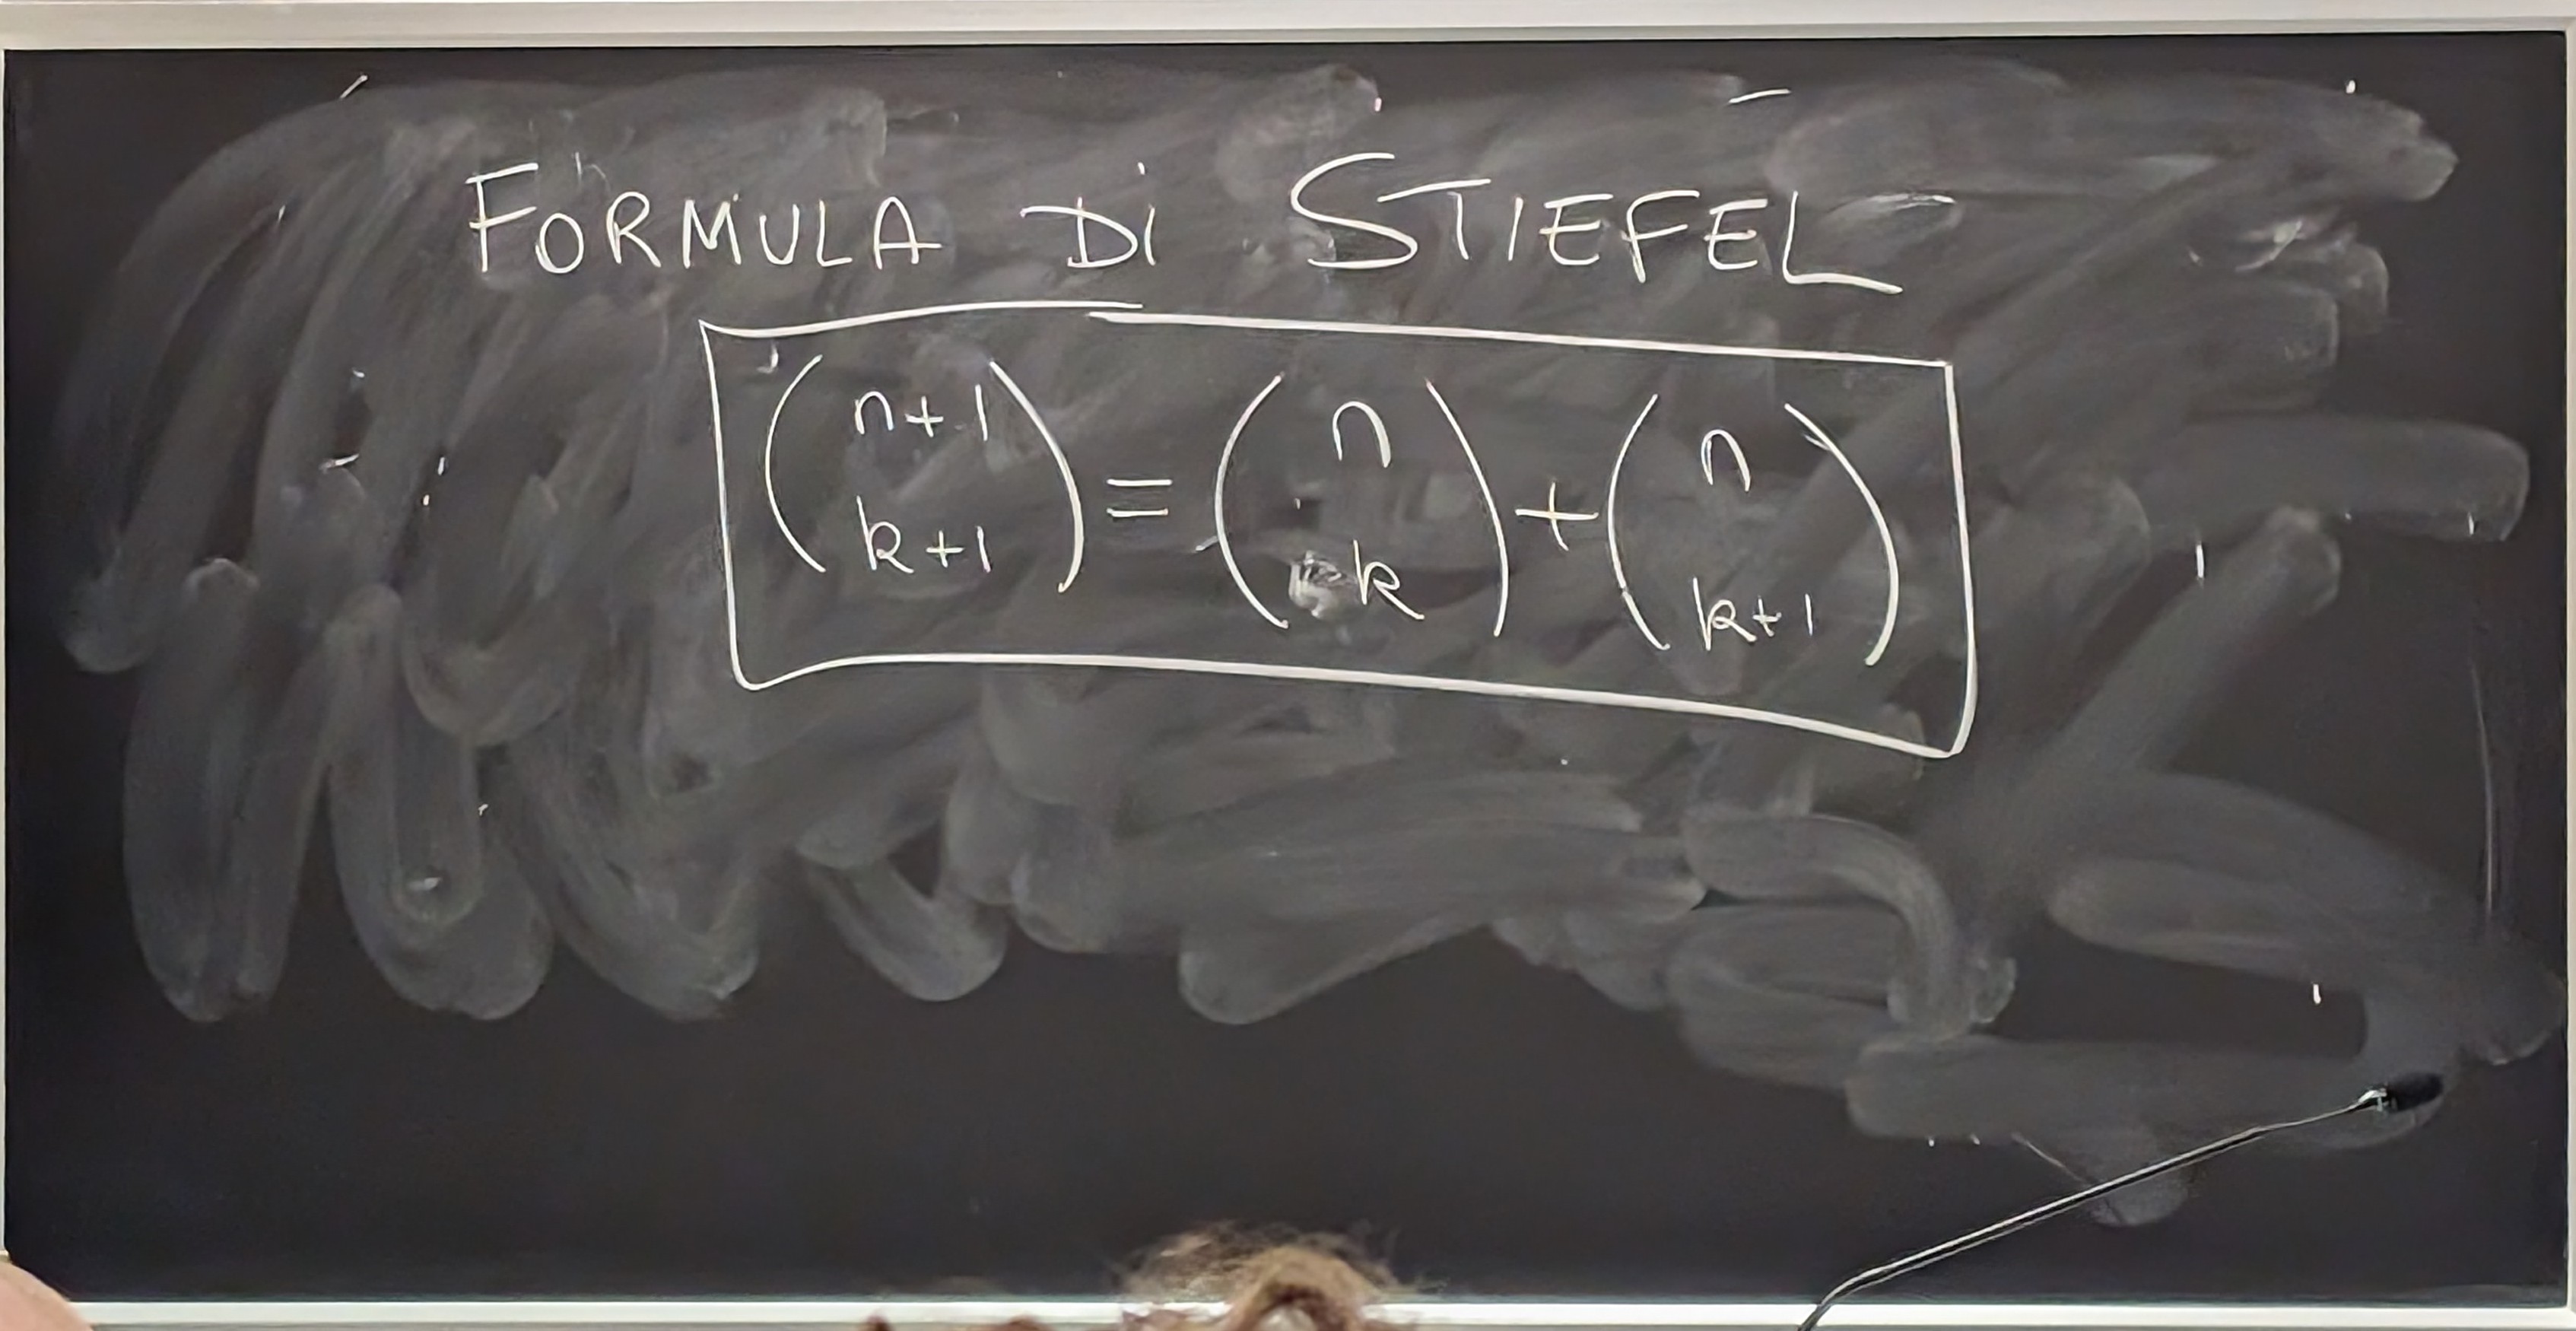 FORMULA Di STIEFEL
(n+1 k+1) = (n k) + (n k+1)